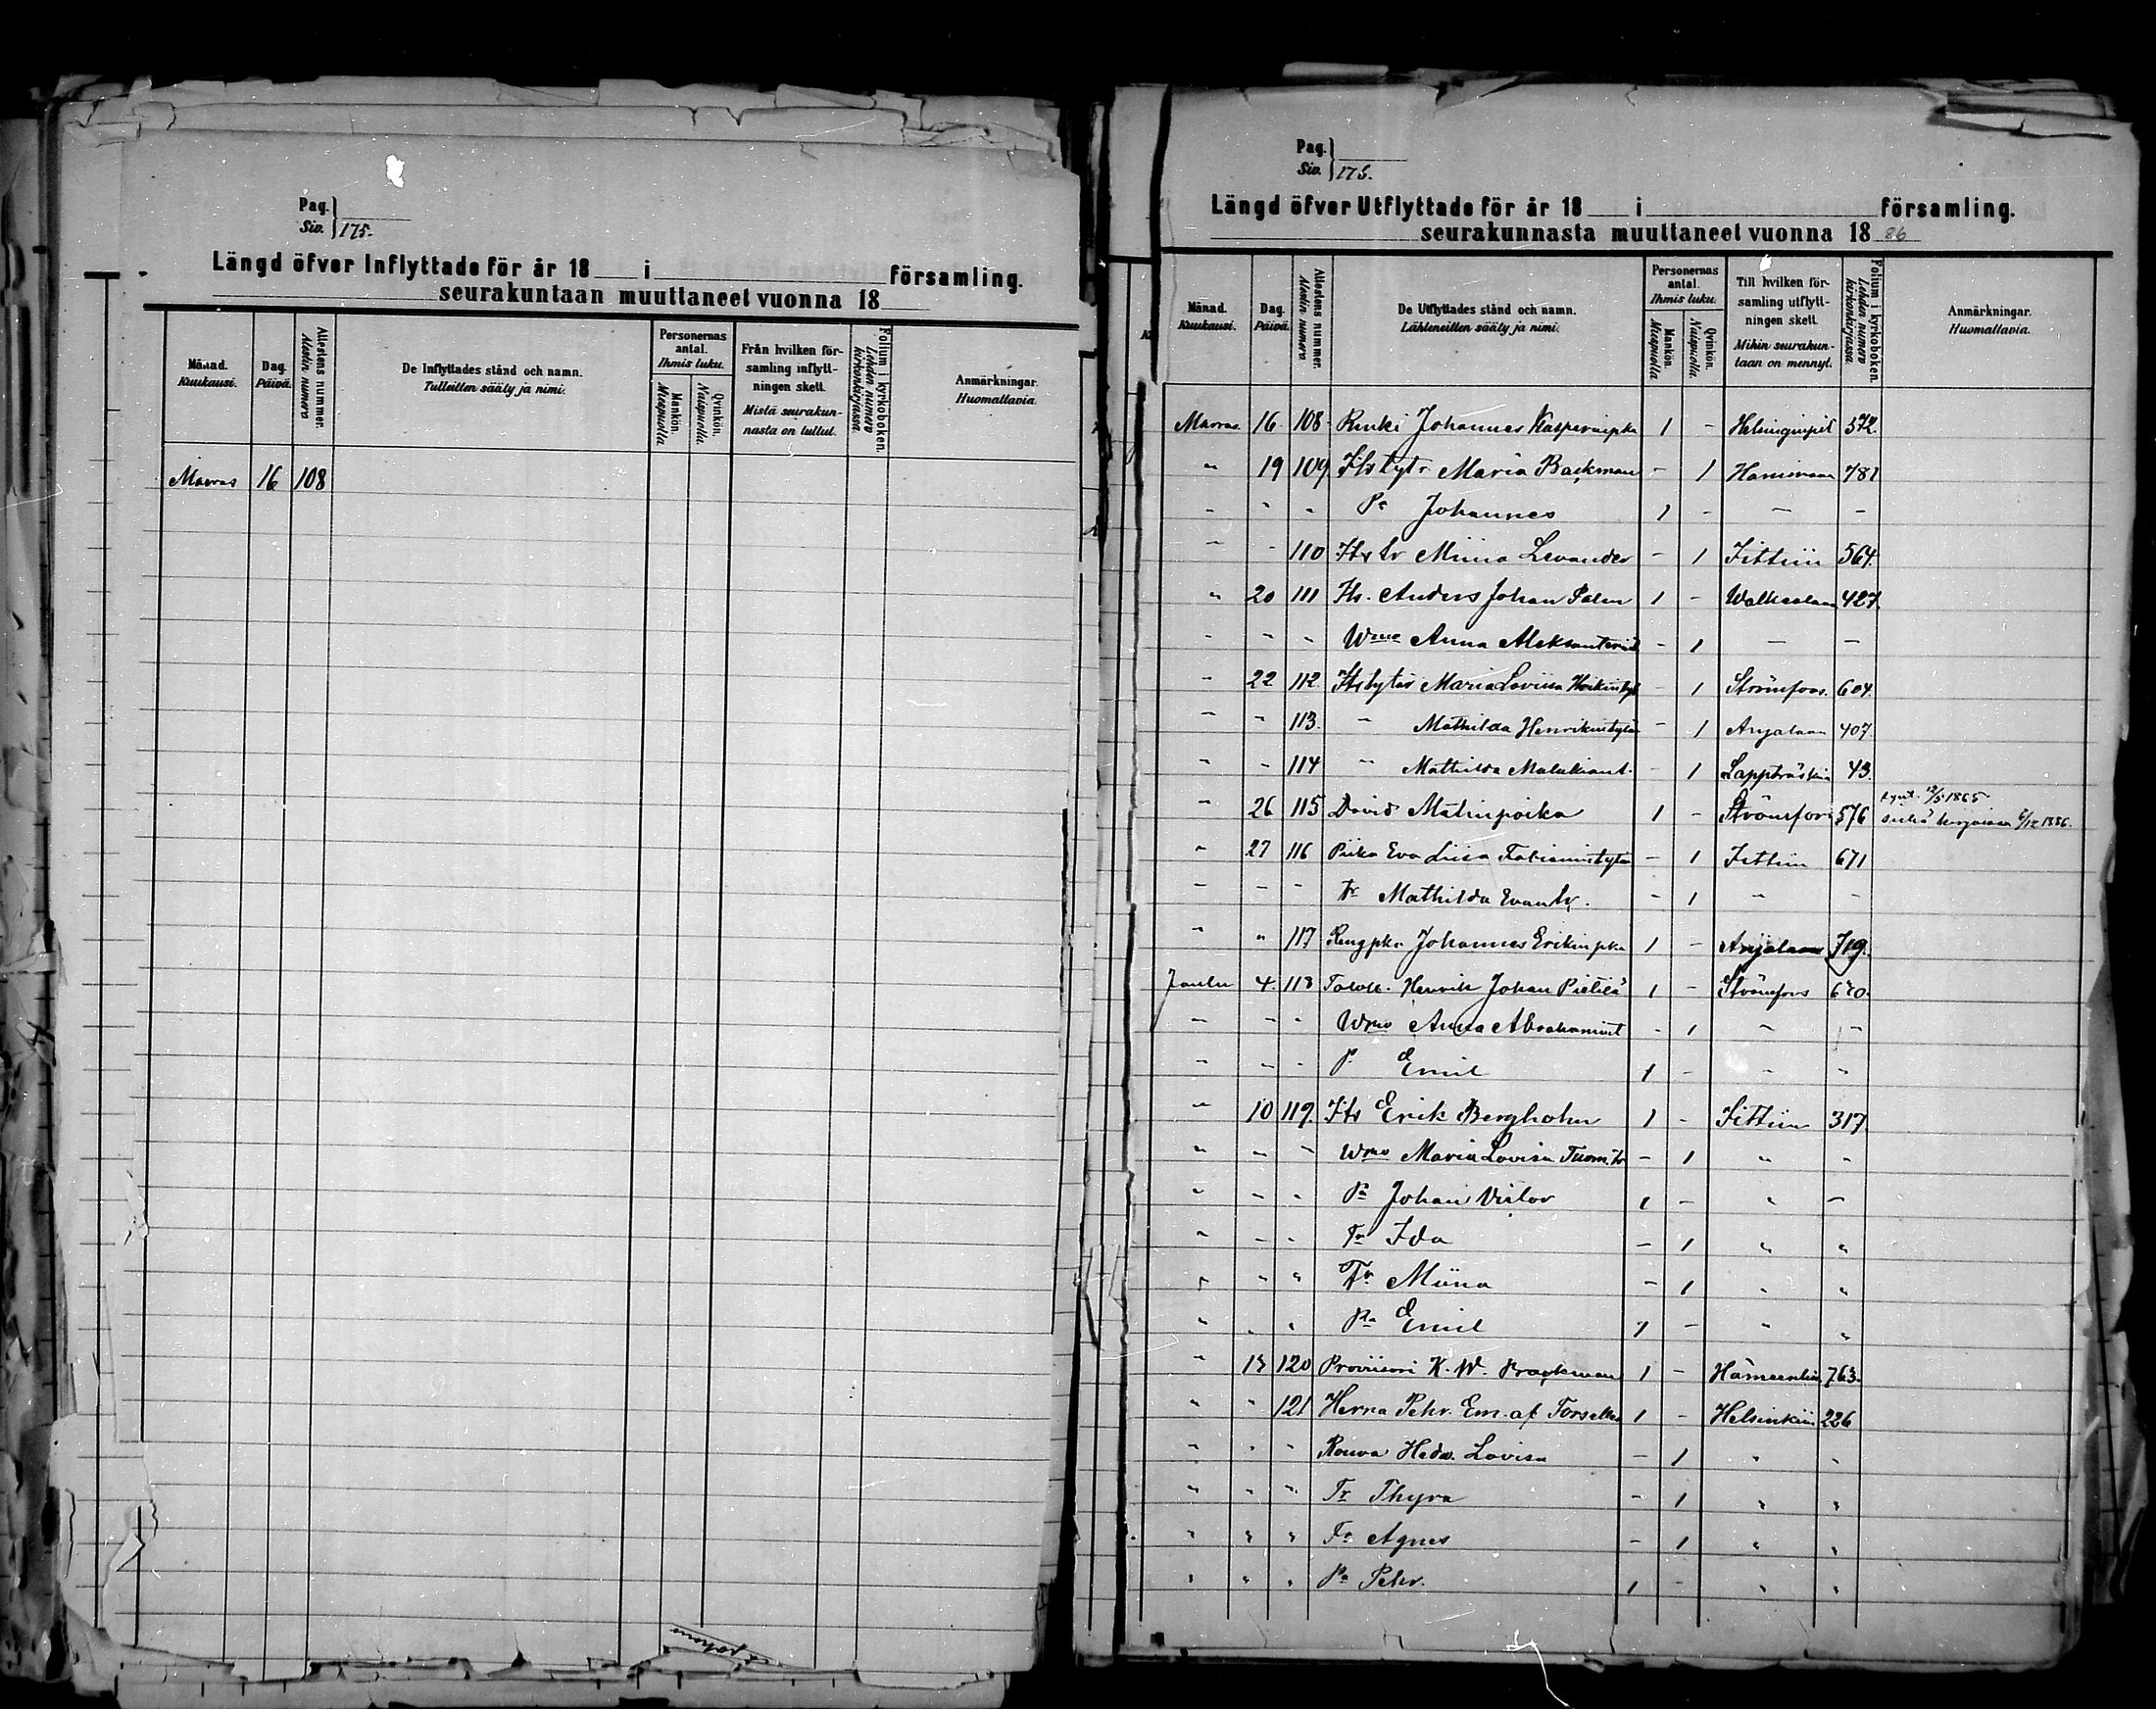 Pag.
Siv. 175.
Längd öfver Inflyttade för år 18 i församling.
seurakuntaan muuttaneet vuonna 18
Månad. Kuukausi. Dag. Päivä. Attestens nummer. Alestin numero De Inflyttades stånd och namn. Tulleitten sääty ja nimi. Personernas antal. Ihmis luku. Mankön. Miespuolia Qvinkön. Naispuolia. Från hvilken församling inflyttningen skett. Mistä seurakunnasta on tullut. Folium i kyrkoboken. Lehden numero kirkonkirjassa Anmärkningar. Huomattavia.
Marras 16 108
Pag.
Siv. 175.
Längd öfver Utflyttade för år 18 i församling.
seurakunnasta muuttaneet vuonna 1886
Månad. Kuukausi. Dag. Päivä. Attestens nummer. Alestin numero De Utflyttades stånd och namn. Lähteneitten sääty ja nimi. Personernas antal. Ihmis luku. Mankön. Miespuolia Qvinkön. Naispuolia. Till hvilken församling utflyttningen skett. Mihin seurakuntaan on mennyt. Folium i kyrkoboken. Lehden numero kirkonkirjassa. Anmärkningar. Huomattavia.
Marras. 16. 108 Renki Johannes Kasperinpka 1 - Helsinginpit 572.
" 19 109 Its tytr Maria Backman - 1 Haminaan 781
- " " Pa Johannes 1 - - -
" - 110 Its tr Miina Levander - 1 Iittiin 564.
" 20 111 Its. Anders Johan Palm 1 - Walkealaan 427.
- - - Wmo Anna Aleksanterint - 1 - -
" 22 112. Its tytär Maria Loviisa Heikintyt - 1 Strömfors. 604.
" " 113. " Mathilda Henrikintytär - 1 Anjalaan 407.
" - 114 " Mathilda Malakiant. - 1 Lappträskiin 43.
" 26 115 David Matinpoika 1 - Strömfors 576 synt. 12/5 1865.
1886.
" 27 116 Piika Eva Liisa Fabianintytär - 1 Iittiin 671
- - - Tr Mathilda Evantr. - 1 " -
" " 117 Rengpka Johannes Erikinpka 1 - Anjalaan 719.
Joulu 4. 118 Henrik Johan Pietilä 1 - Strömfors 670.
- - " Wmo Anna Abrahamint - 1 " -
" - - P. Emil 1 - " "
" 10 119. Its Erik Bergholm 1 - Iittiin 317.
" - - Wmo Maria Lovisa Tuom.tr - 1 " "
" - " Pa Johan Viktor 1 - " -
" - " Tr Ida - 1 " "
" " " Tr Miina - 1 " "
" " " Pka Emil 1 - " "
" 13 120 Proviisori K. W. Brackman 1 - Hämeenlin. 763.
" " 121 Herra Pehr Em. af Forselles 1 - Helsinkiin 226
" " " Rouva Hedv. Lovisa - 1 " "
" " " Tr Thyra - 1 " "
" " " Tr Agnes - 1 " "
" " " Pa Pehr. 1 - " "